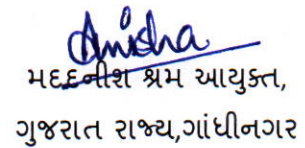 Anisha
મદદનીશ શ્રમ આયુક્ત,
ગુજરાત રાજ્ય,ગાંધીનગર